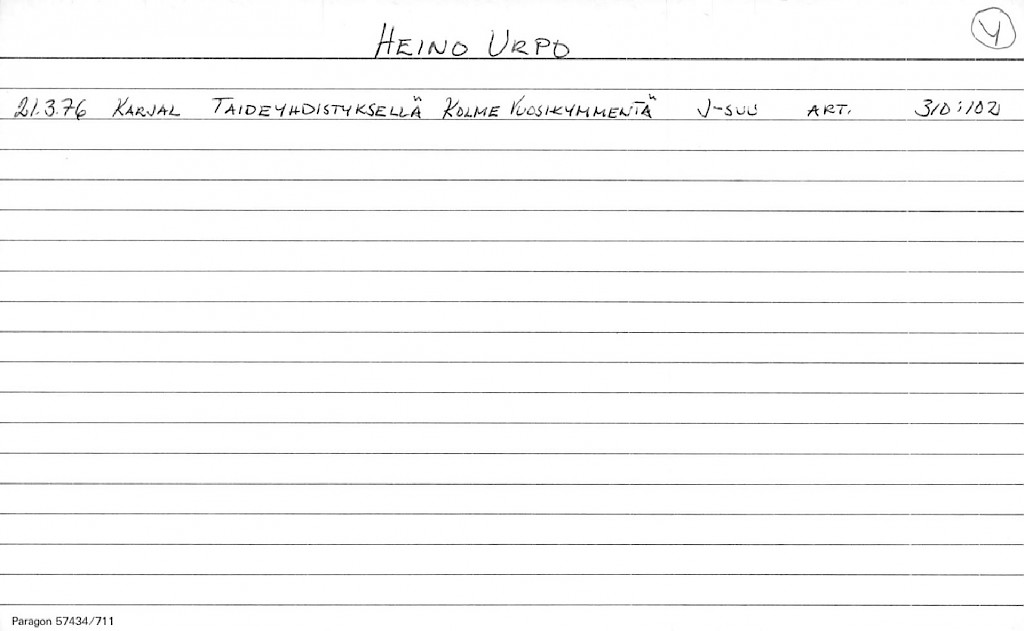 HEINO URPO
Y
21.3.76 KARJAL TAIDEYHDISTYKSELLÄ KOLME VUOSIKYMMENTÄ J-SUU ART. 310:102
Paragon 57434/711